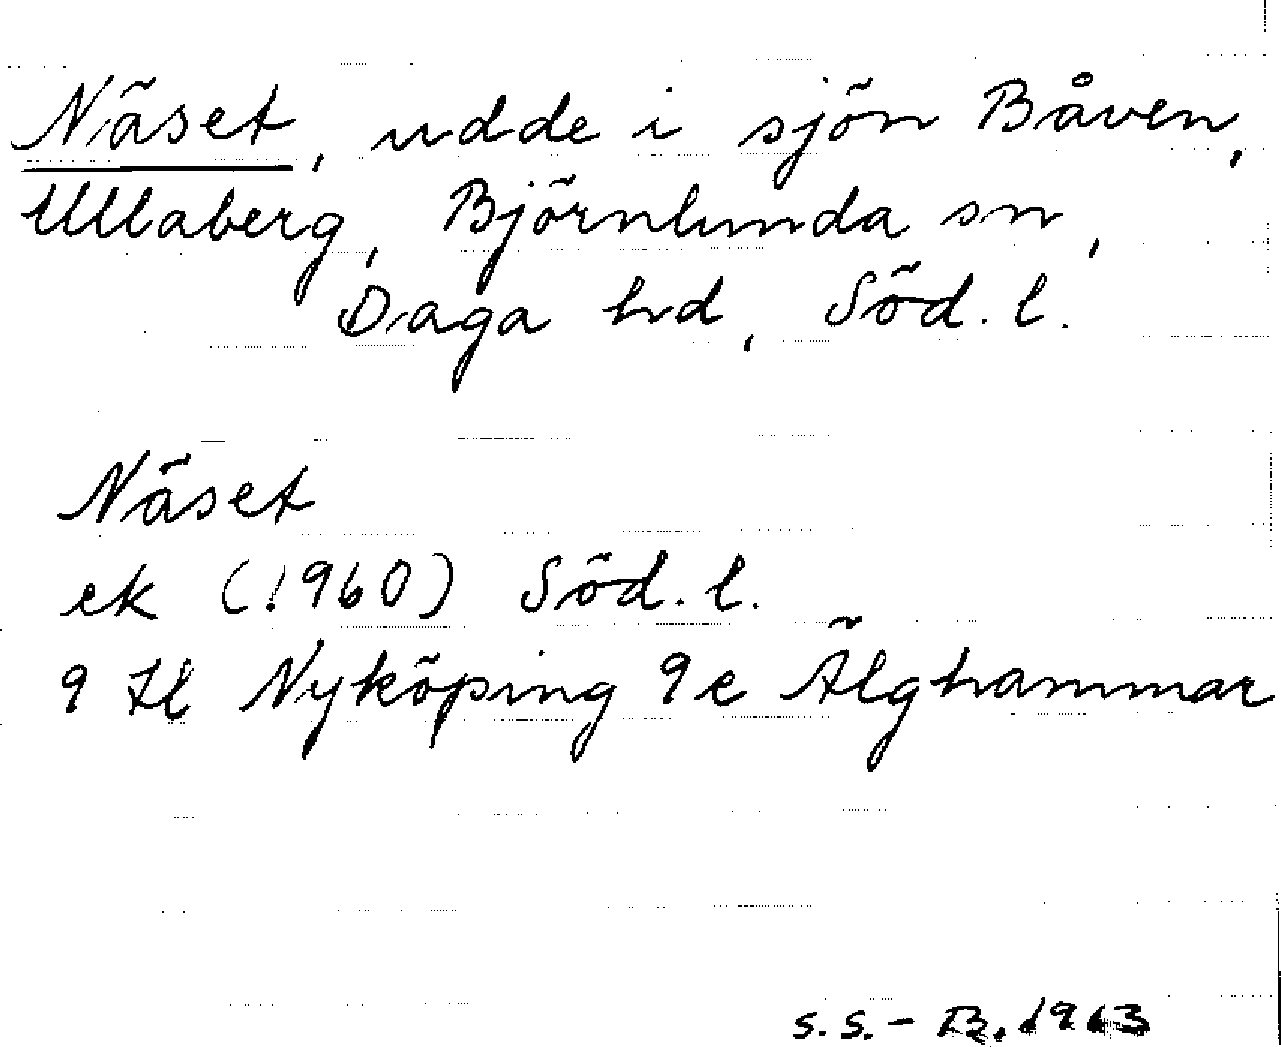 Näset, udde i sjön Båven,
Ullaberg, Björnlunda sn,
Daga hd, Söd. l.
Näset
ek (1960) Söd. l.
9 Hl Nyköping 9e Älghammar
S. S. - B. 1963